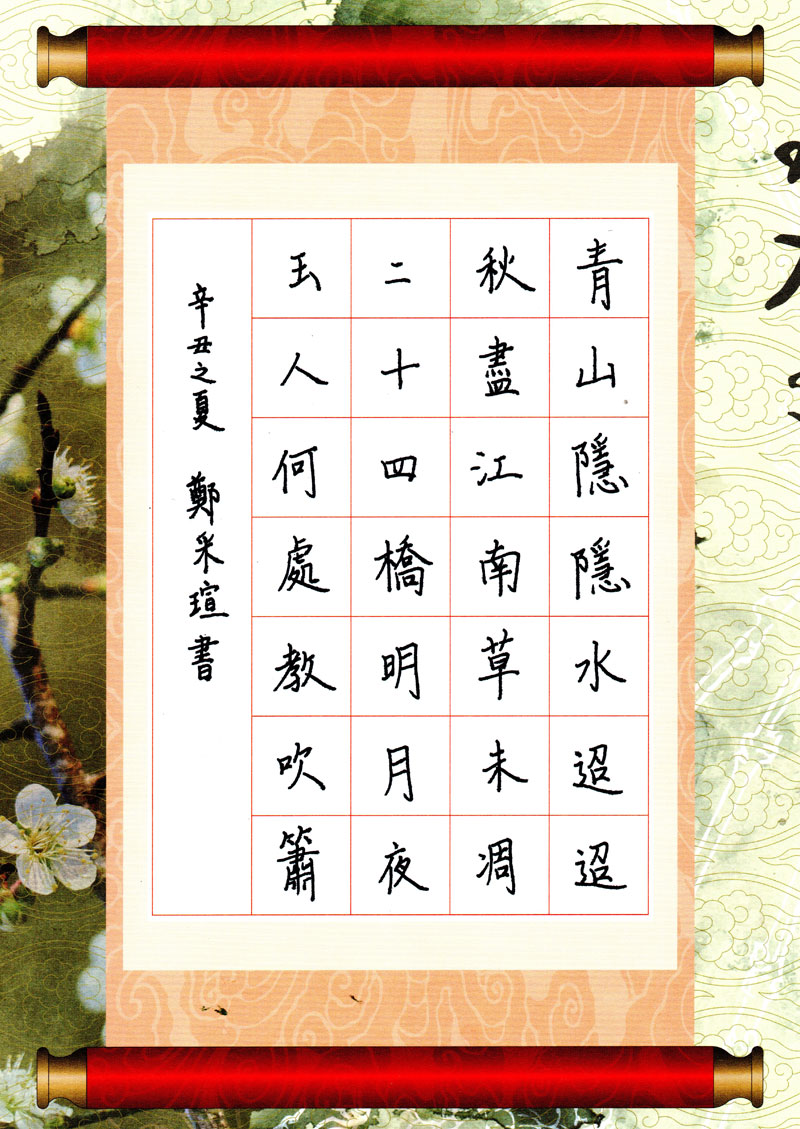 青山隱隱水迢迢
秋盡江南草未凋
二十四橋明月夜
玉人何處教吹簫
辛丑之夏 鄭采瑄書